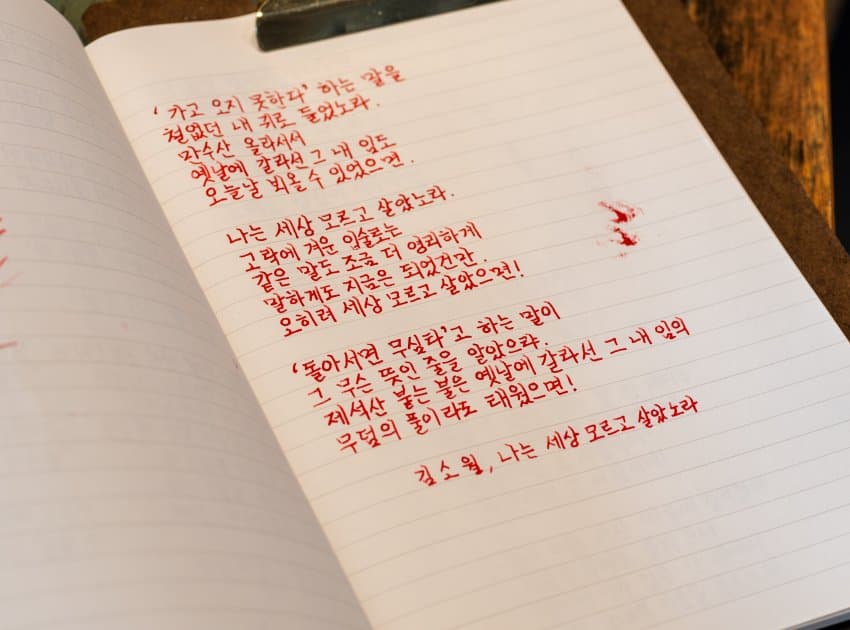 ‘가고 오지 못한다’ 하는 말을
철없던 내 귀로 들었노라.
만수산 올라서서
옛날에 갈라선 그 내 임도
오늘날 뵈올 수 있었으면.
나는 세상 모르고 살았노라.
고락에 겨운 입술로는
같은 말도 조금 더 영리하게
말하게도 지금은 되었건만.
오히려 세상 모르고 살았으면!
‘돌아서면 무심타’고 하는 말이
그 무슨 뜻인 줄을 알았으랴.
제석산 붙는 불은 옛날에 갈라선 그 내 임의
무덤의 풀이라도 태웠으면!
김소월, 나는 세상 모르고 살았노라